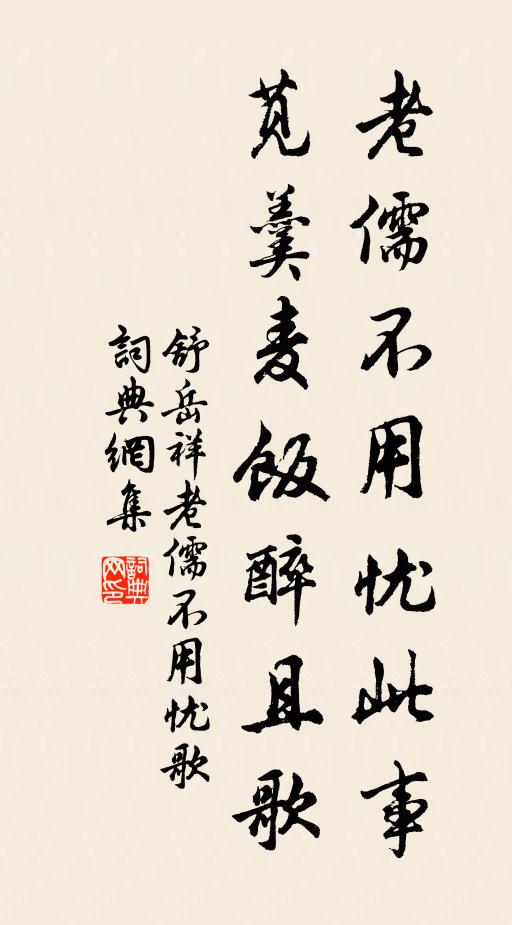 老儒不用忧此事
苋羹麦饭醉且歌
舒岳祥老儒不用忧歌
詞典網集
詞典网印